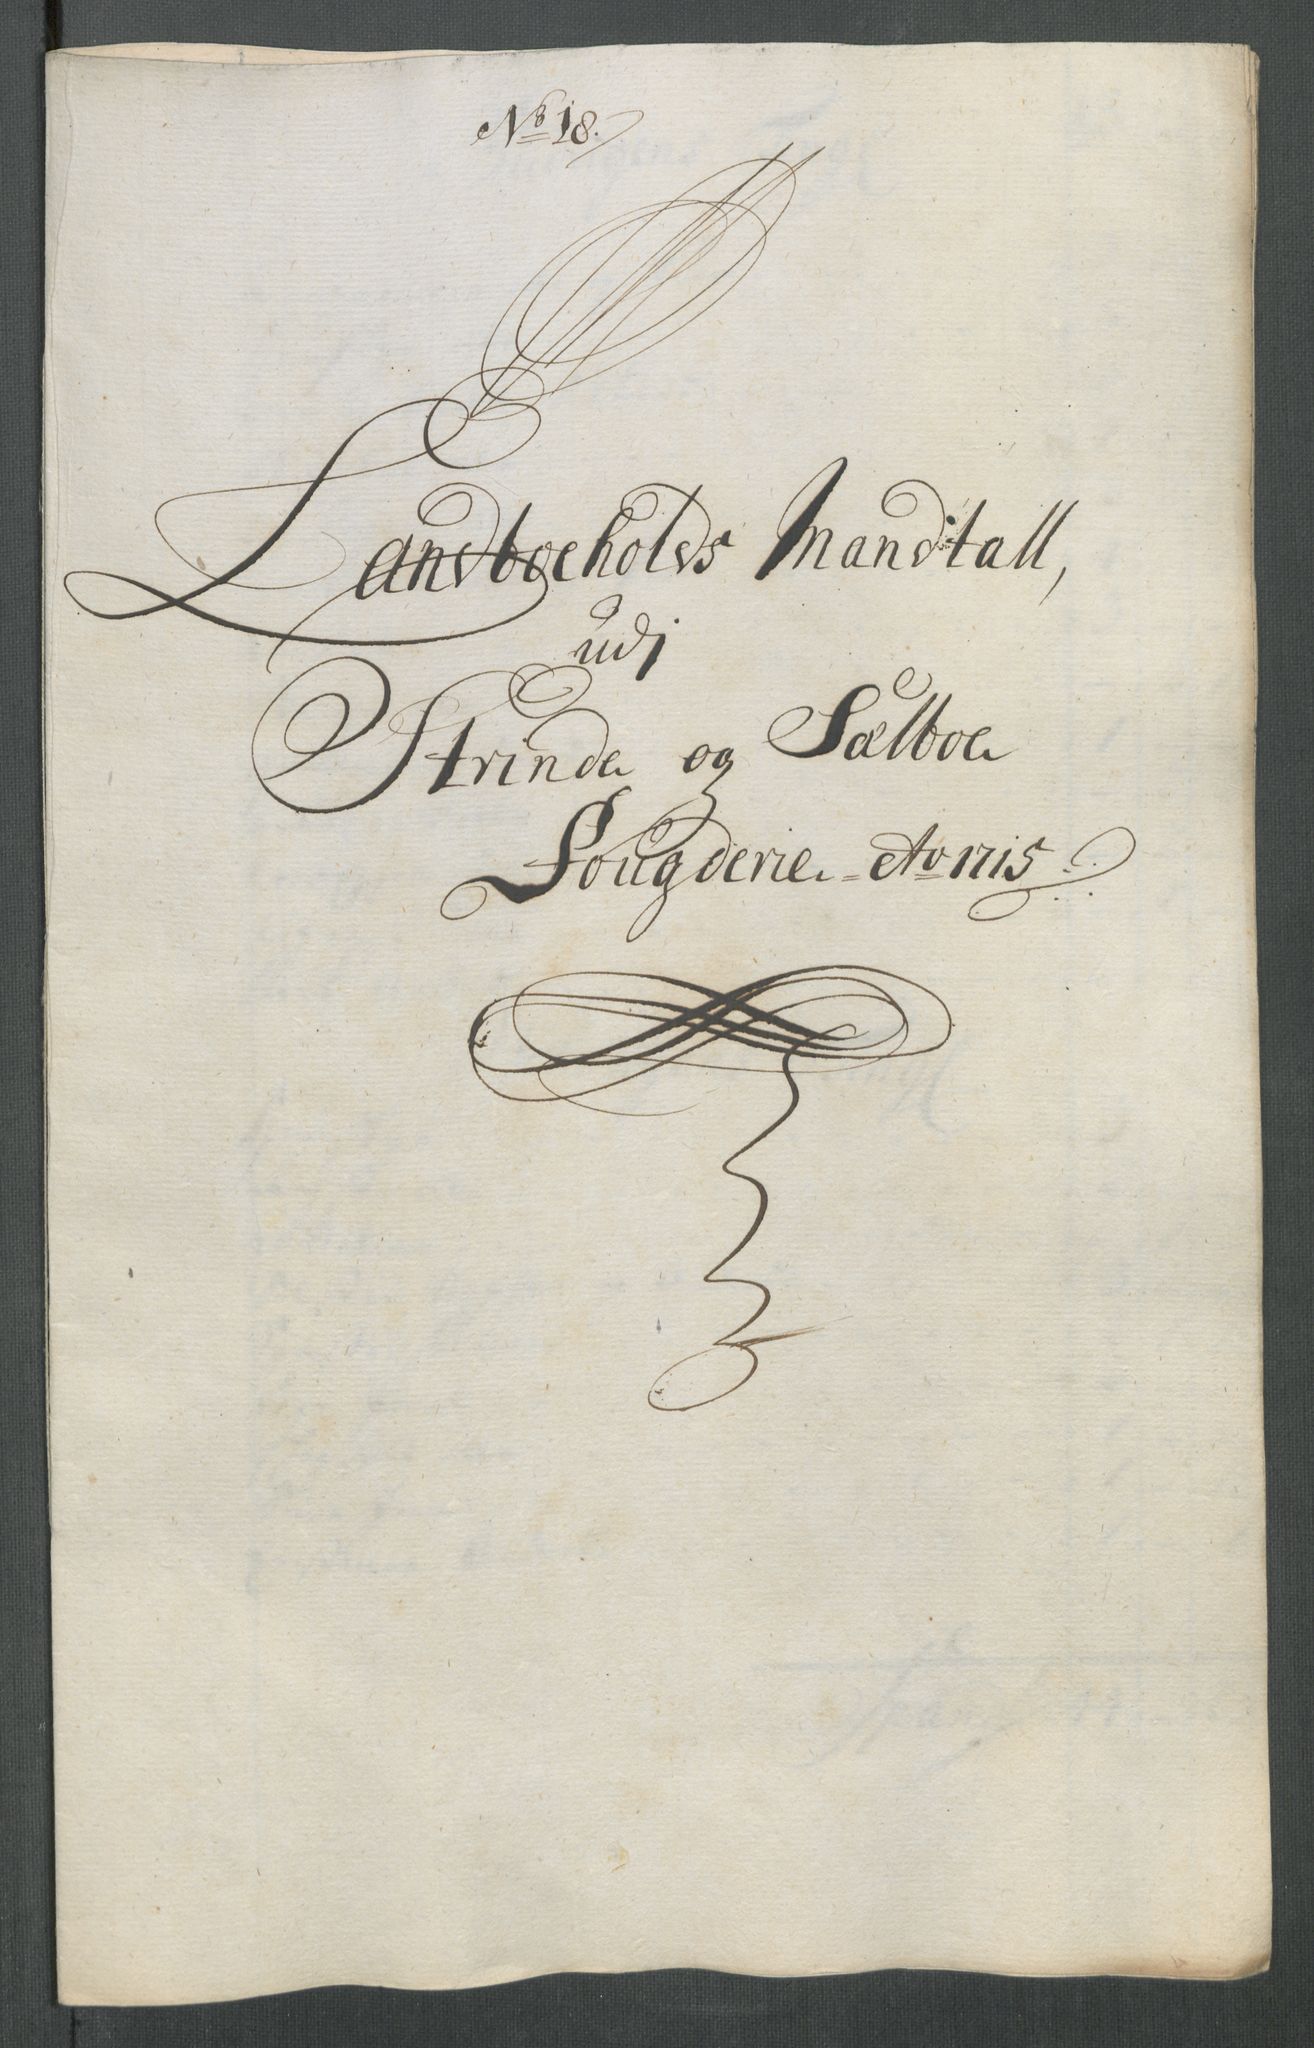 No 18.
Landboeholds Mandtall,
udj
Strinde og Sælboe
Fougderie Ao 1715